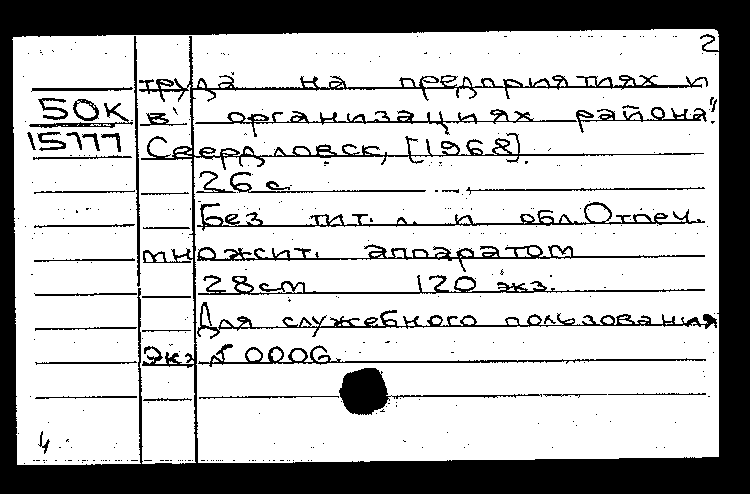 2
труда на предприятиях и
50К в организациях района".
15777 Свердловск, [1968].
26 с.
Без тит. л. и обл. Отпеч.
множит. аппаратом
28 см. 120 экз.
Для служебного пользования
Экз № 0006.
4